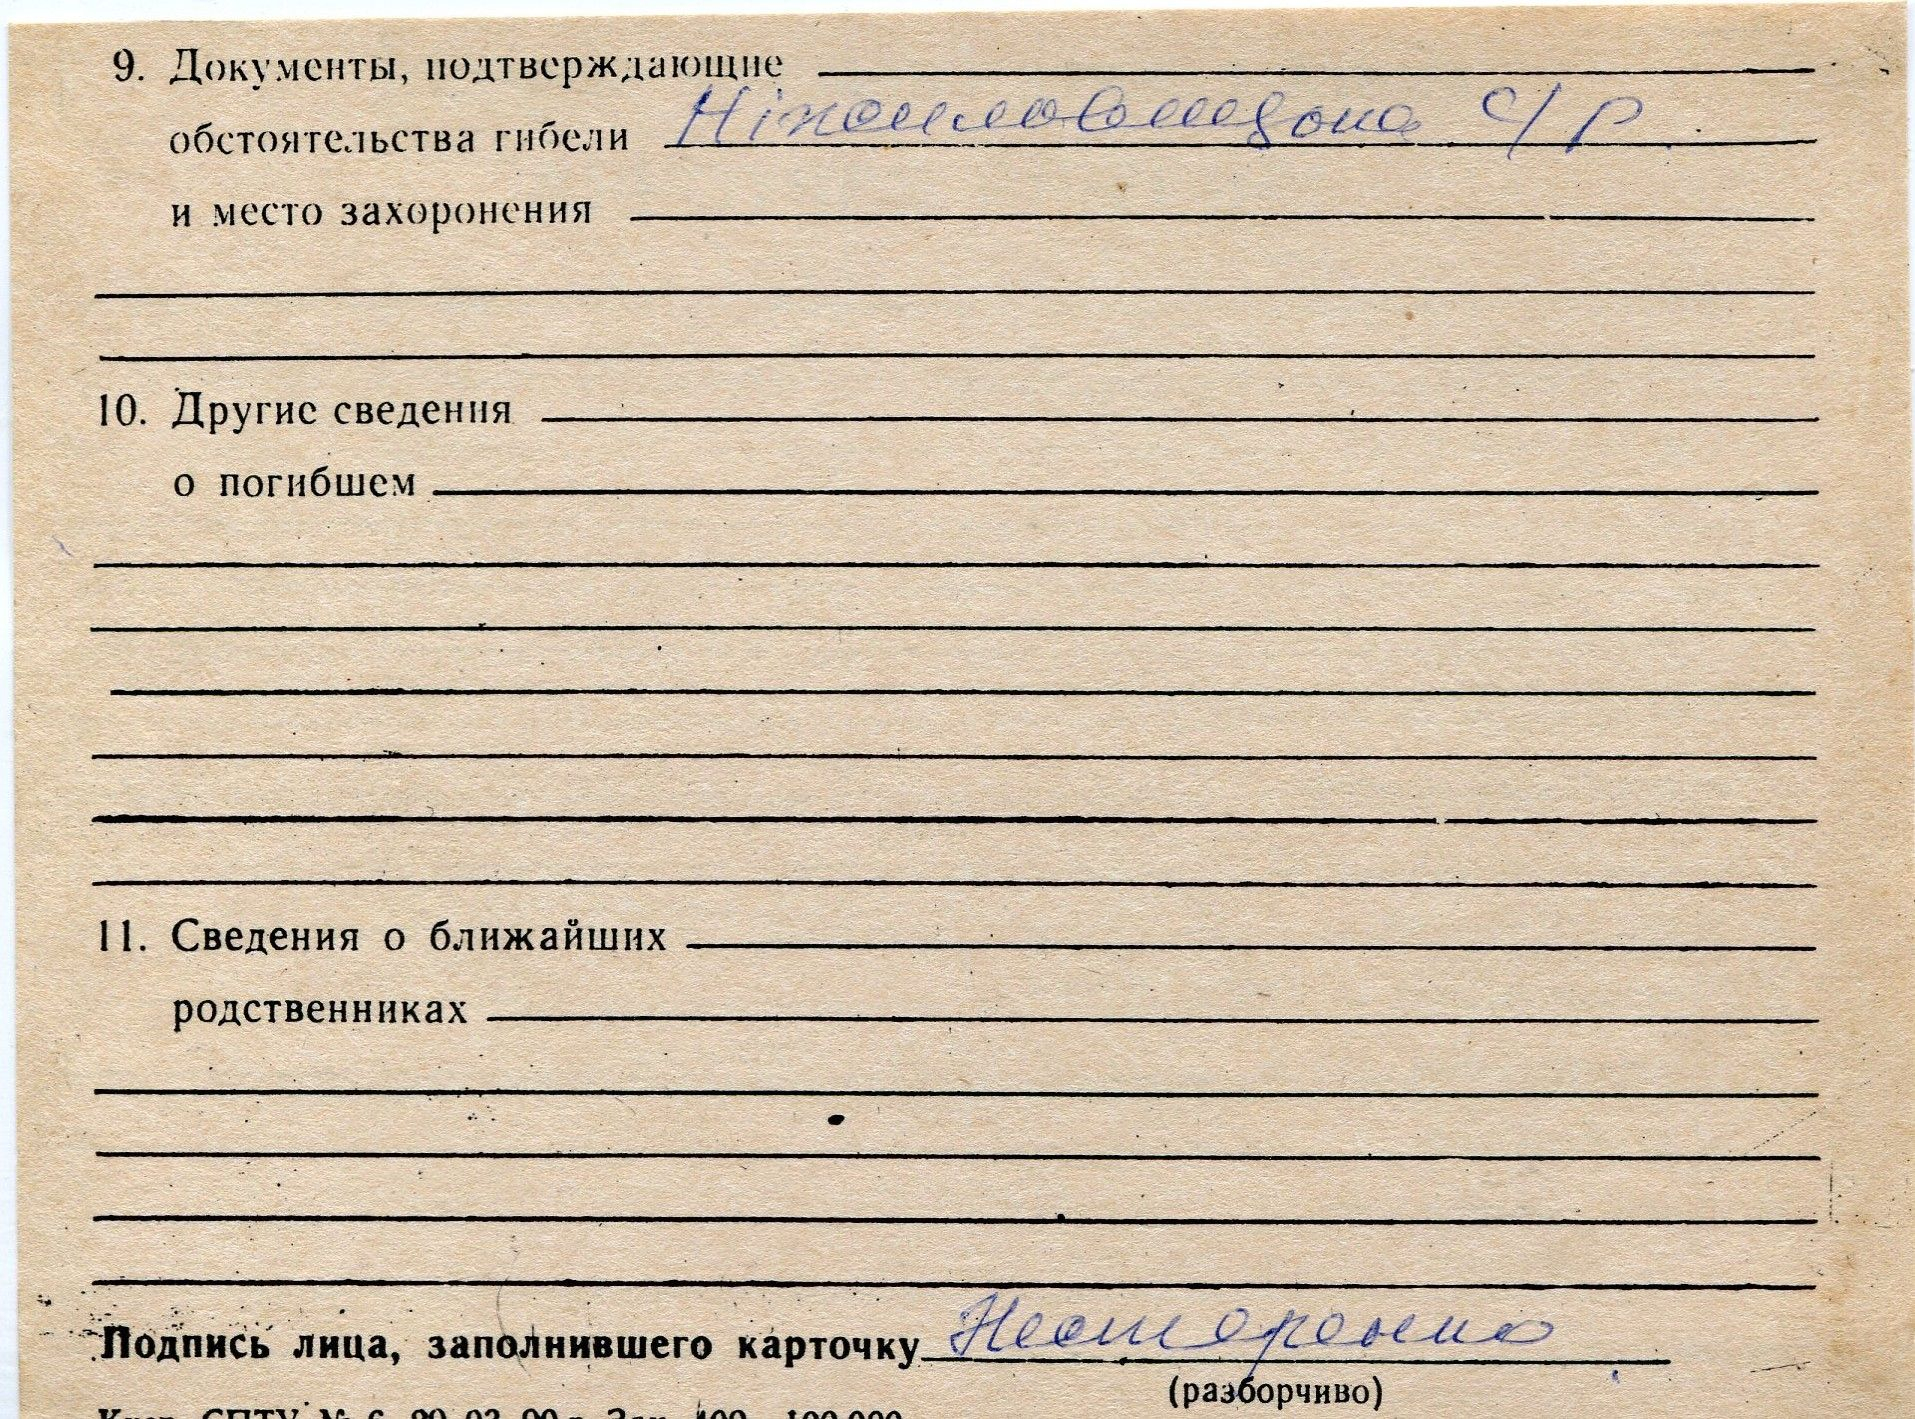 9. Документы, подтверждающие
обстоятельства гибели с/р
и место захоронения
10. Другие сведения
о погибшем
11. Сведения о ближайших
родственниках
Подпись лица, заполнившего карточку Нестеренко
(разборчиво)
СПТУ № 6